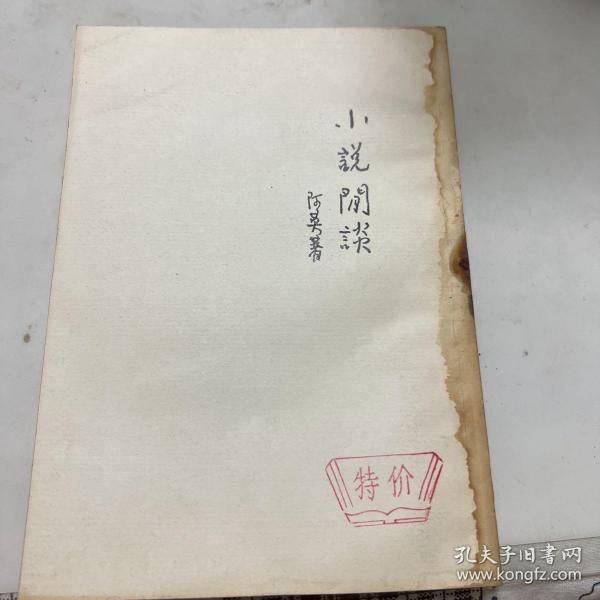 小説閒談
阿英著
特价
孔夫子旧書网
www.kongfz.com